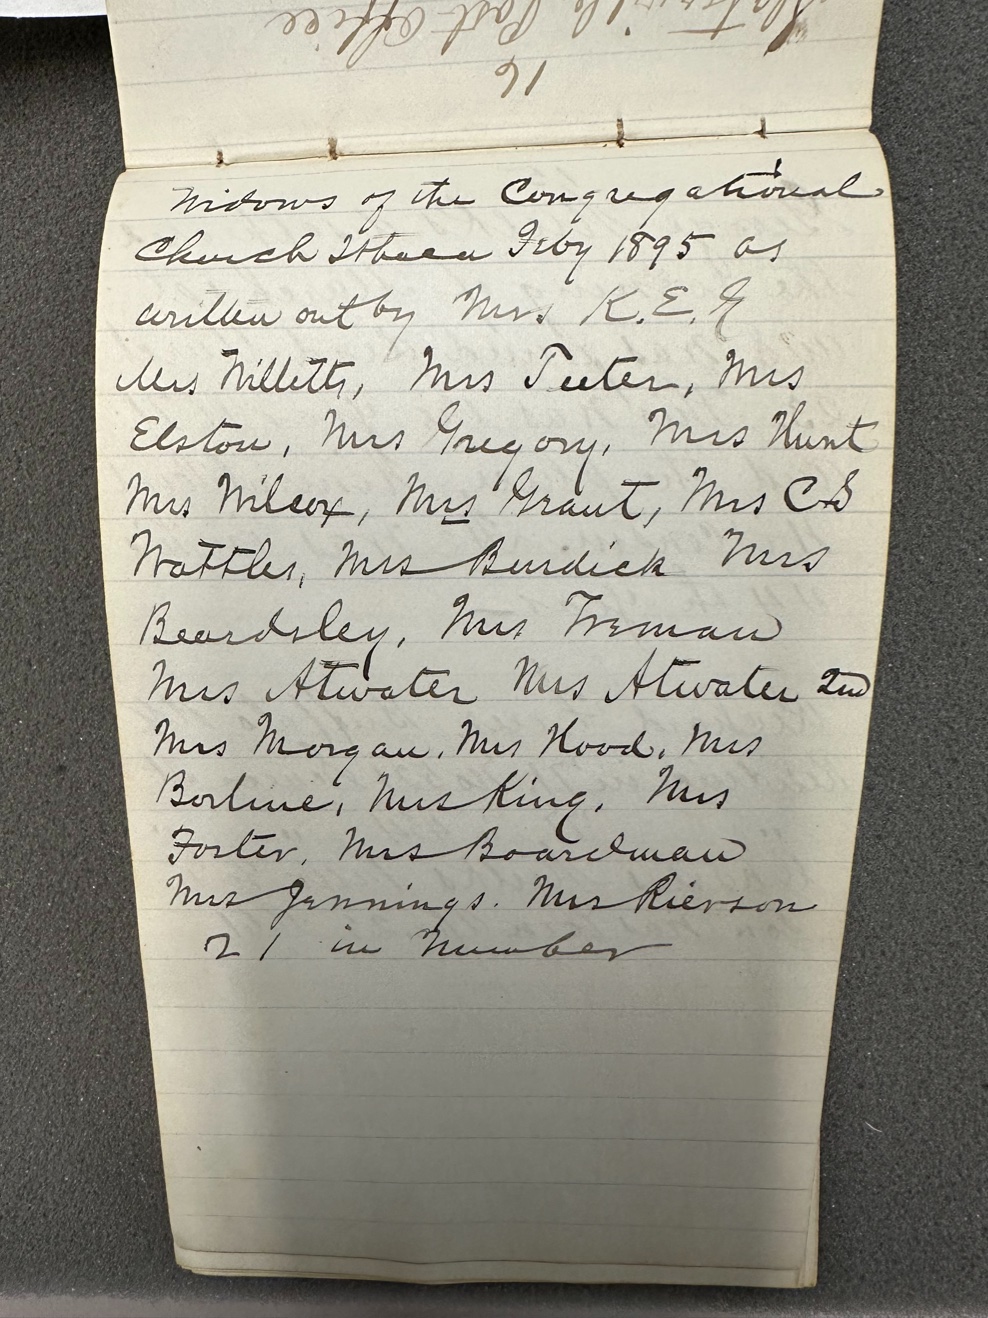 Slaterville Post Office
16
Widows of the Congregational
Church Ithaca Feby 1895 as
written out by Mrs K. E. G
Mrs Willetts, Mrs Teeter, Mrs
Elston, Mrs Gregory, Mrs Hunt
Mrs Wilcox, Mrs Grant, Mrs C S
Wattles, Mrs Burdick Mrs
Beardsley, Mrs Treman
Mrs Atwater Mrs Atwater 2nd
Mrs Morgan, Mrs Hood, Mrs
Borline, Mrs King, Mrs
Foster, Mrs Boardman
Mrs Jennings. Mrs Rierson
21 in Number